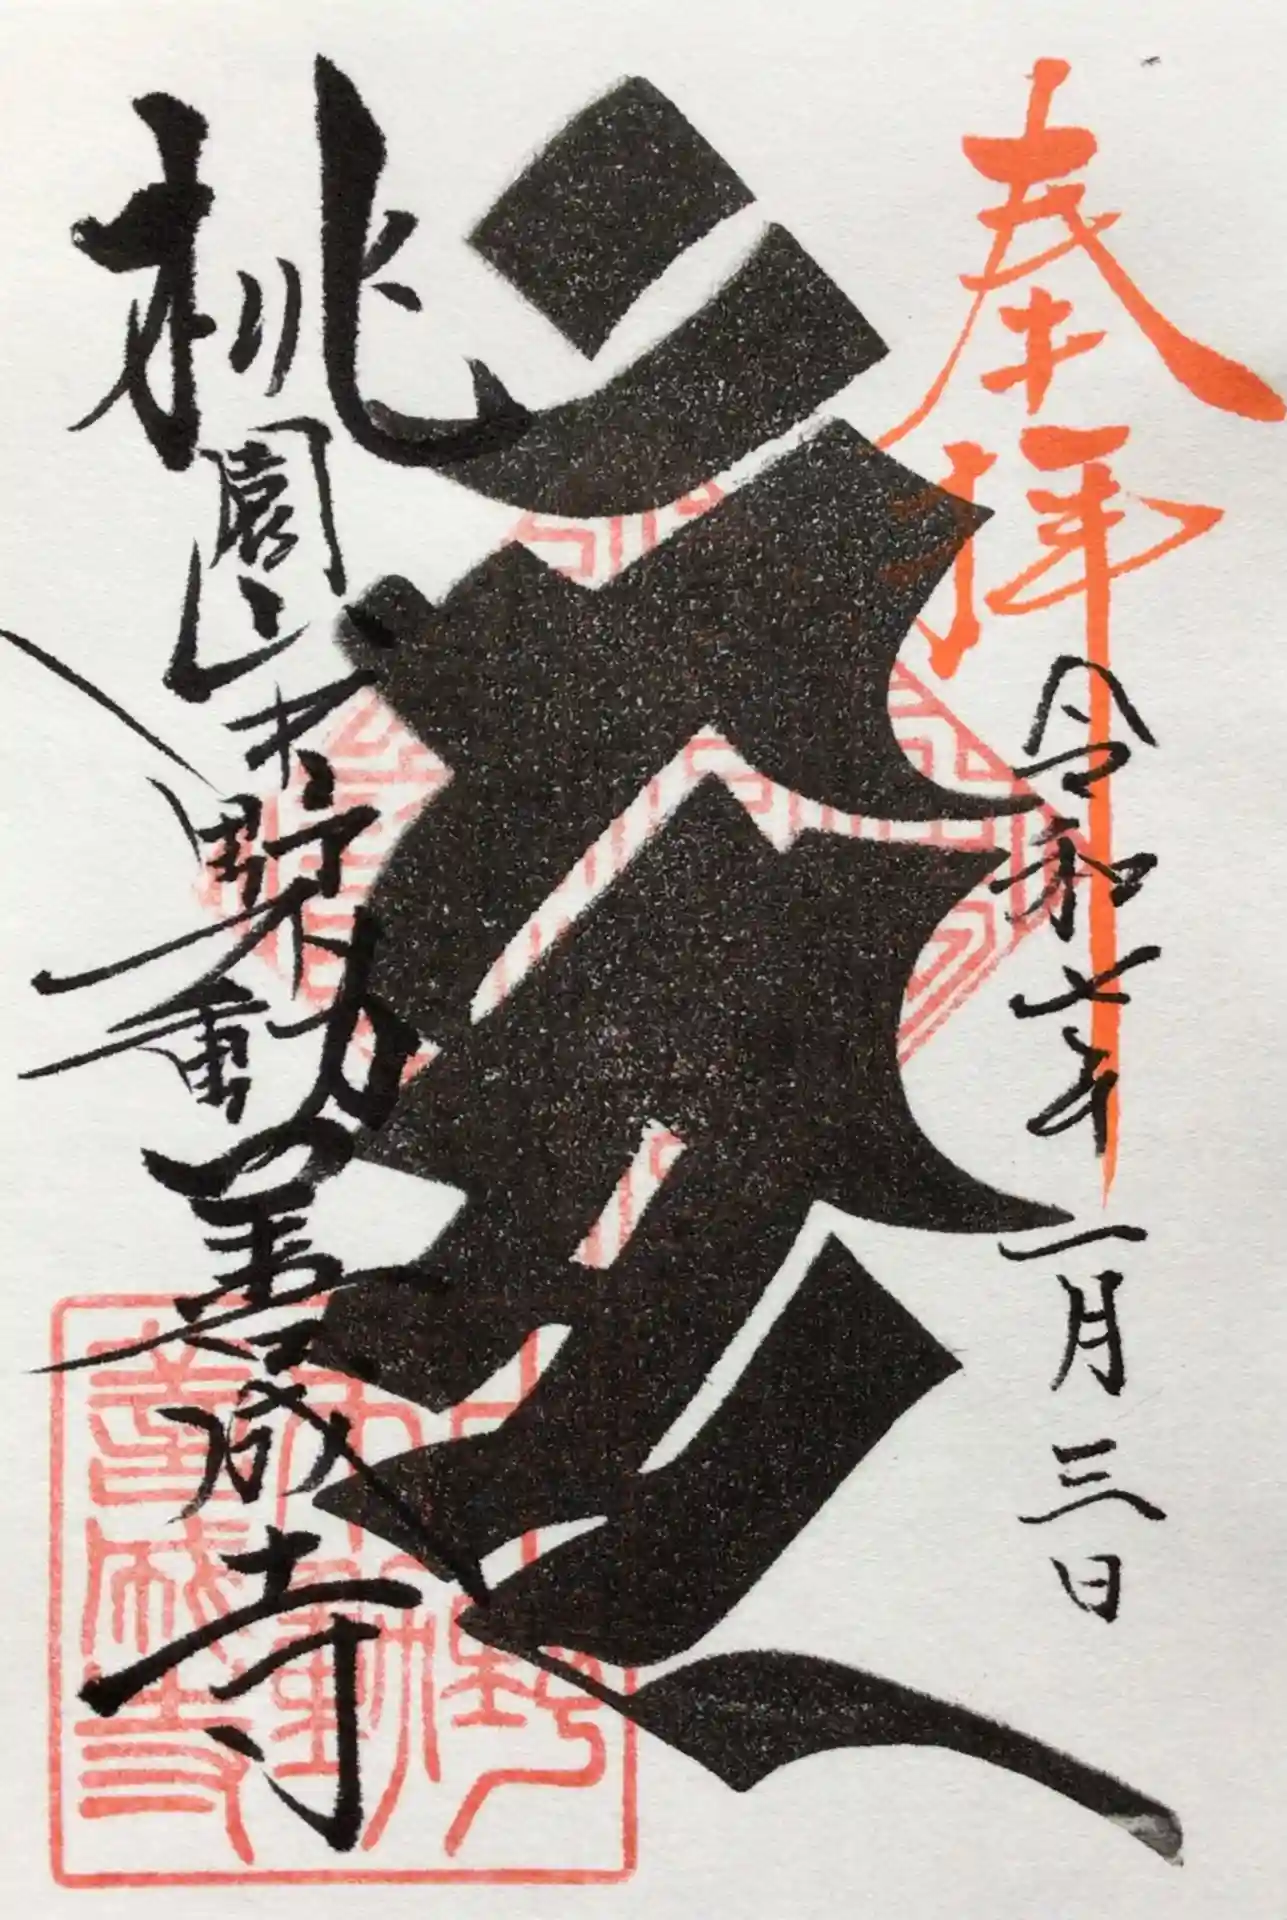 奉拝
令和七年一月三日
桃園山
野不動
善成寺
善成寺